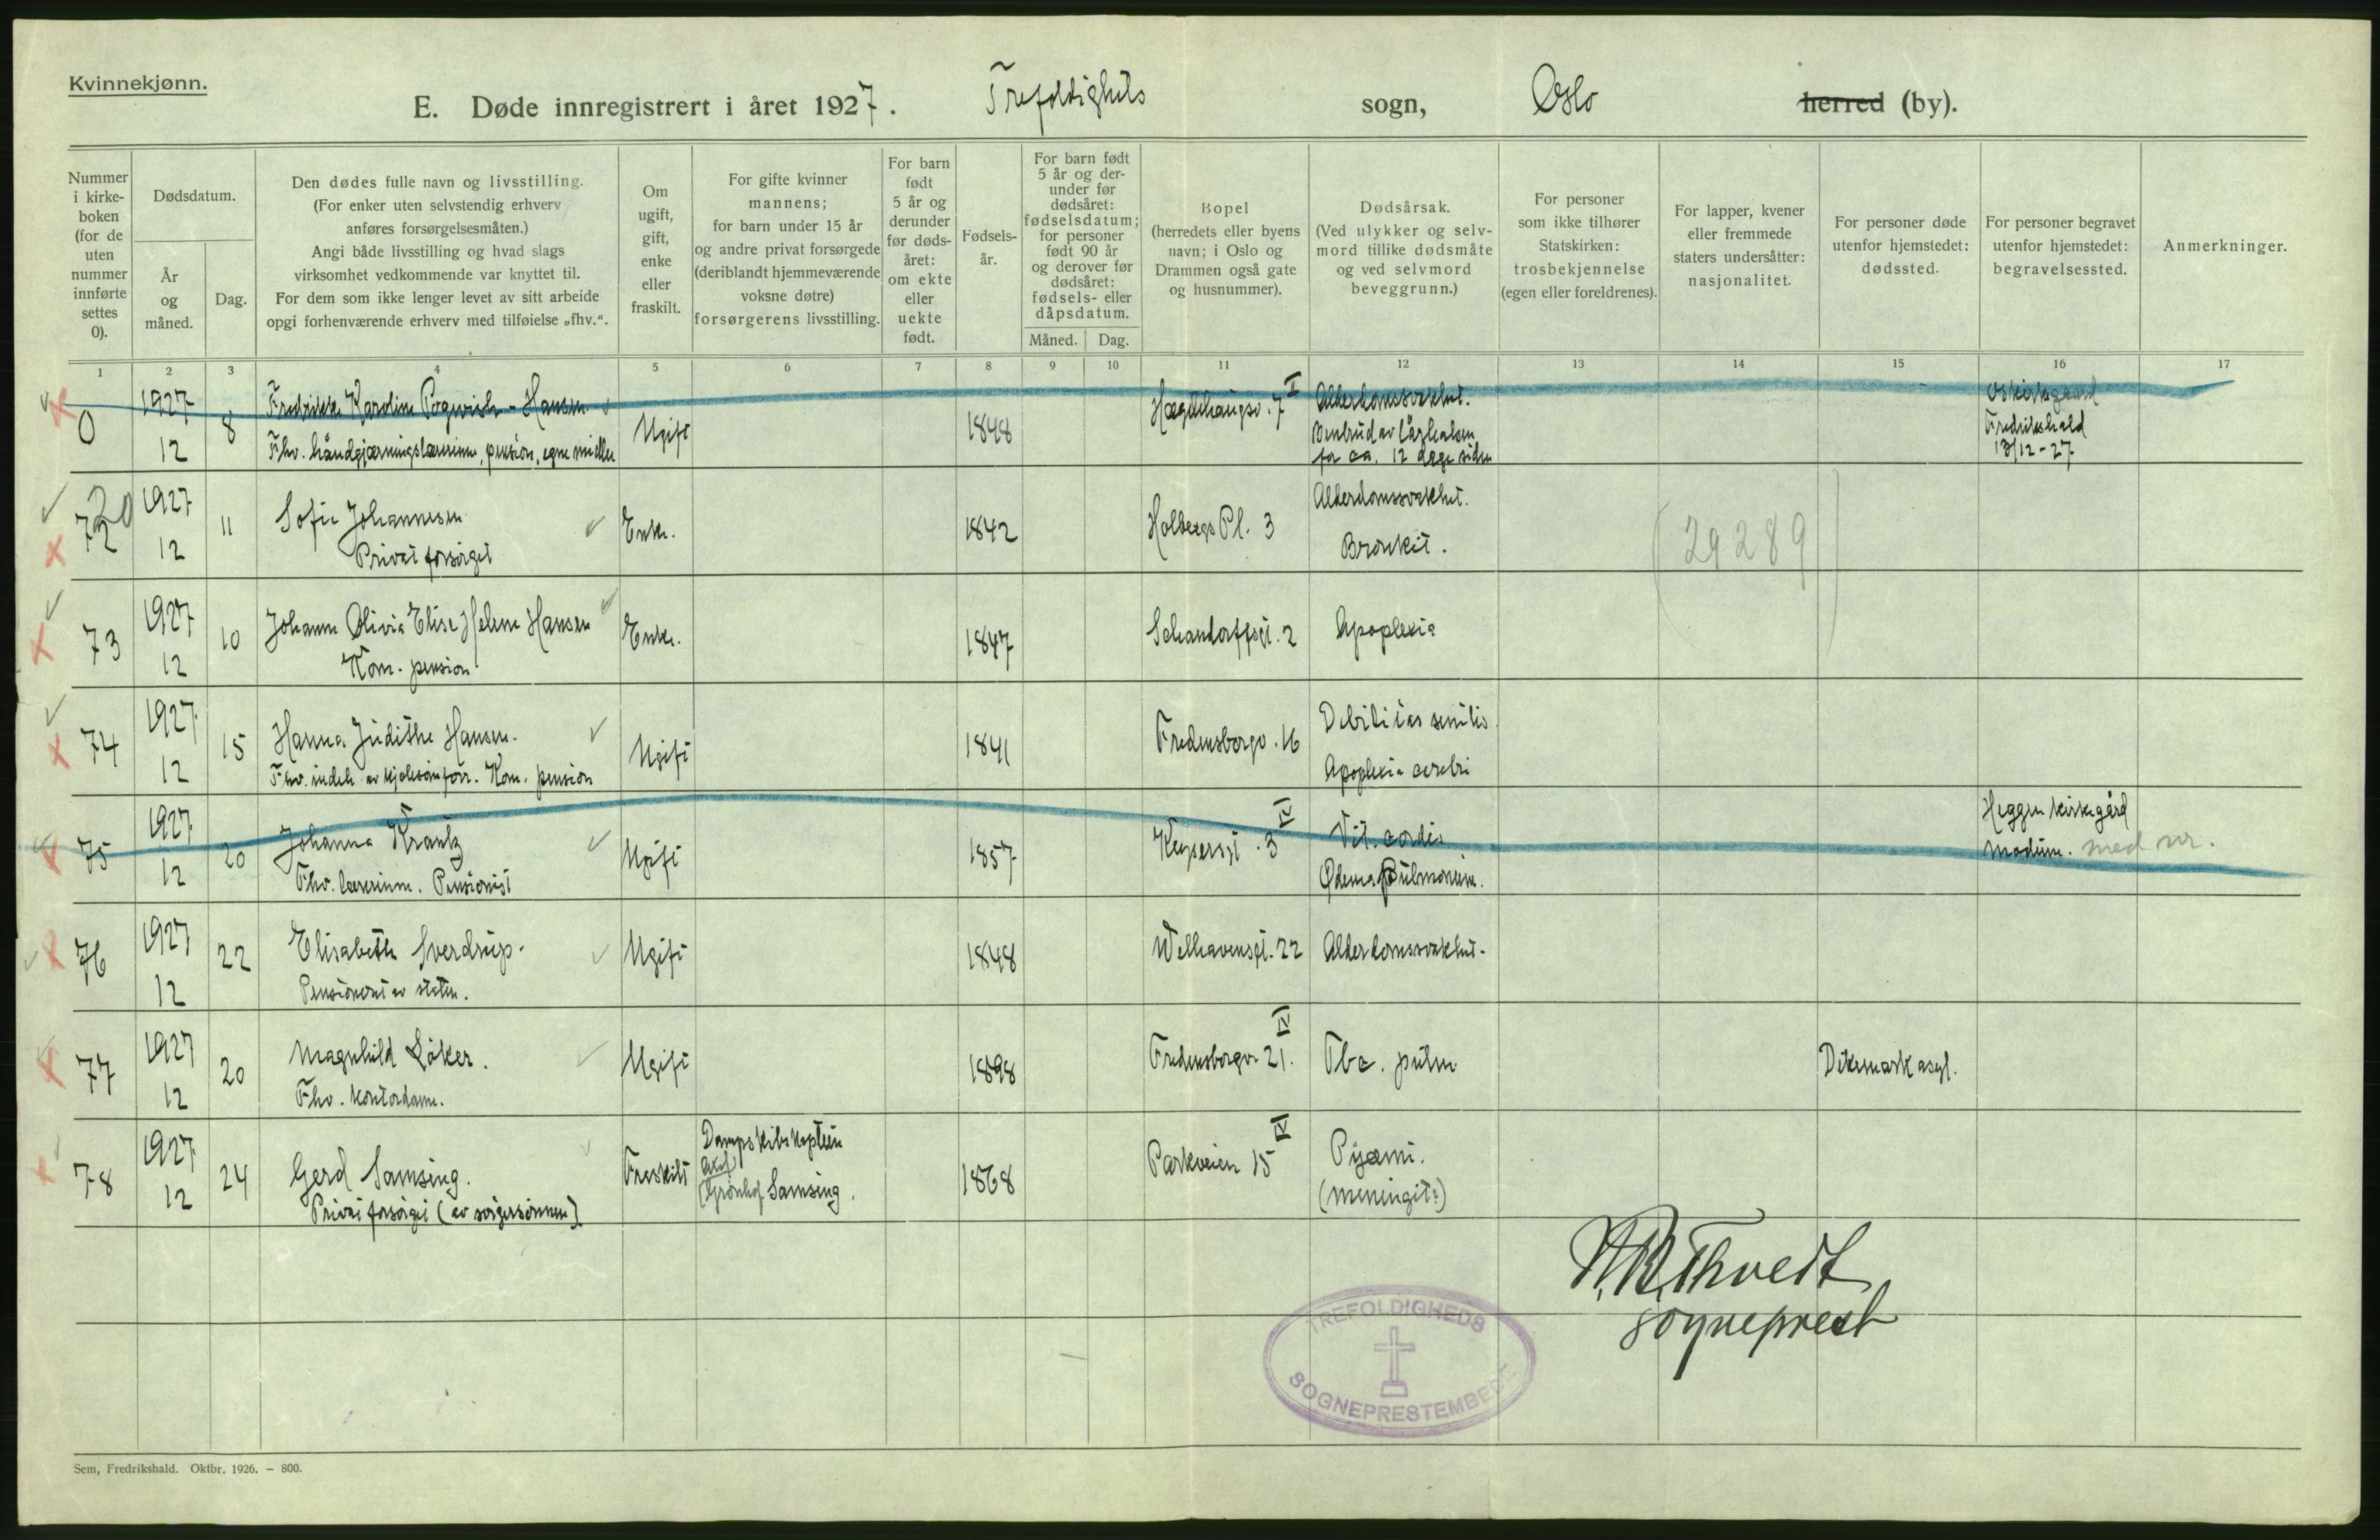 Kvinnekjønn.
E. Døde innregistrert i året 1927. Trefoldighets sogn, Oslo herred (by).
Nummer i kirke-boken (for de uten nummer innførte settes 0).
Dødsdatum.
År og måned.
Dag.
Den dødes fulle navn og livsstilling.
(For enker uten selvstendig erhverv anføres forsørgelsesmåten.)
Angi både livsstilling og hvad slags virksomhet vedkommende var knyttet til.
For dem som ikke lenger levet av sitt arbeide opgi forhenværende erhverv med tilføielse „fhv.“.
Om ugift, gift, enke eller fraskilt.
For gifte kvinner mannens;
for barn under 15 år og andre privat forsørgede (deriblandt hjemmeværende voksne døtre) forsørgerens livsstilling.
For barn født 5 år og derunder før døds-året: om ekte eller uekte født.
Fødsels-år.
For barn født 5 år og der-under før dødsåret: fødselsdatum; for personer født 90 år og derover før dødsåret: fødsels- eller dåpsdatum.
Måned.
Dag.
Bopel
(herredets eller byens navn; i Oslo og Drammen også gate og husnummer).
Dødsårsak.
(Ved ulykker og selv-mord tillike dødsmåte og ved selvmord beveggrunn.)
For personer som ikke tilhører Statskirken: trosbekjennelse (egen eller foreldrenes).
For lapper, kvener eller fremmede staters undersåtter: nasjonalitet.
For personer døde utenfor hjemstedet: dødssted.
For personer begravet utenfor hjemstedet: begravelsessted.
Anmerkninger.
1 2 3 4 5 6 7 8 9 10 11 12 13 14 15 16 17
0 1927 12 8
Fredrikke Karoline Pogwisch-Hansen
Fhv. håndgjærningslærerinne, pension, egne midler
Ugift 1848
Hægdehaugsv. 7 II
Alderdomssvakhet.
Benbrud av lårhalsen
for ca. 12 dage siden
Fredrikshald
13/12-27
20
72 1927 12 11
Sofie Johannesen
Privat forsørget
Enke. 1842
Holbergs Pl. 3
Alderdomssvakhet.
Bronkit.
(29289)
73 1927 12 10
Johanne Olivia Elise Helene Hansen
Kom. pension
Enke. 1847
Schandorffsgt. 2
Apoplexia
74 1927 12 15
Hanna Judithe Hansen.
Fhv. indeh. av kjolesømforr. Kom. pension
Ugift 1841
Fredensborgv. 16
Debilitas senilis
Apoplexia cerebri
75 1927 12 20
Johanna Krantz
Fhv. lærerinne. Pensionist
Ugift 1857
Keysersgt. 3 IV
Vit. cordis
Ødema pulmonum.
Heggen kirkegård
Modum. med nr.
76 1927 12 22
Elisabeth Sverdrup.
Pensionert av staten.
Ugift 1848
Welhavensgt. 22
Alderdomssvakhet.
77 1927 12 20
Magnhild Løker.
Fhv. kontordame.
Ugift 1898
Fredensborgv. 21. IV
Tbc. pulm
Dikemark asyl.
78 1927 12 24
Gerd Samsing.
Privat forsørget (av svigersønnen)
Fraskilt
Dampskibskaptein
Grönhof Samsing.
1868
Parkveien 15 IV
Pyæmi.
(meningit?)
sogneprest
TREFOLDIGHEDS
SOGNEPRESTEMBEDE
Sem, Fredrikshald. Oktbr. 1926. – 800.